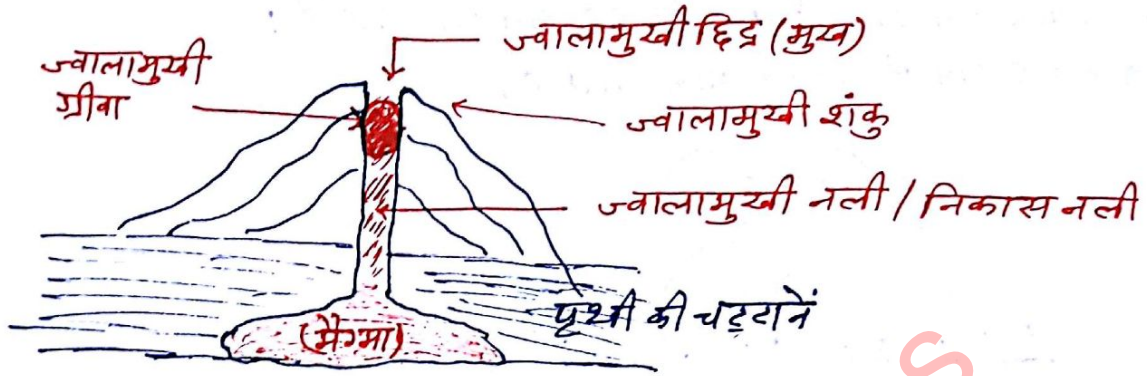 ज्वालामुखी छिद्र (मुख)
ज्वालामुखी
ग्रीवा
ज्वालामुखी शंकु
ज्वालामुखी नली / निकास नली
पृथ्वी की चट्टानें
(मैग्मा)